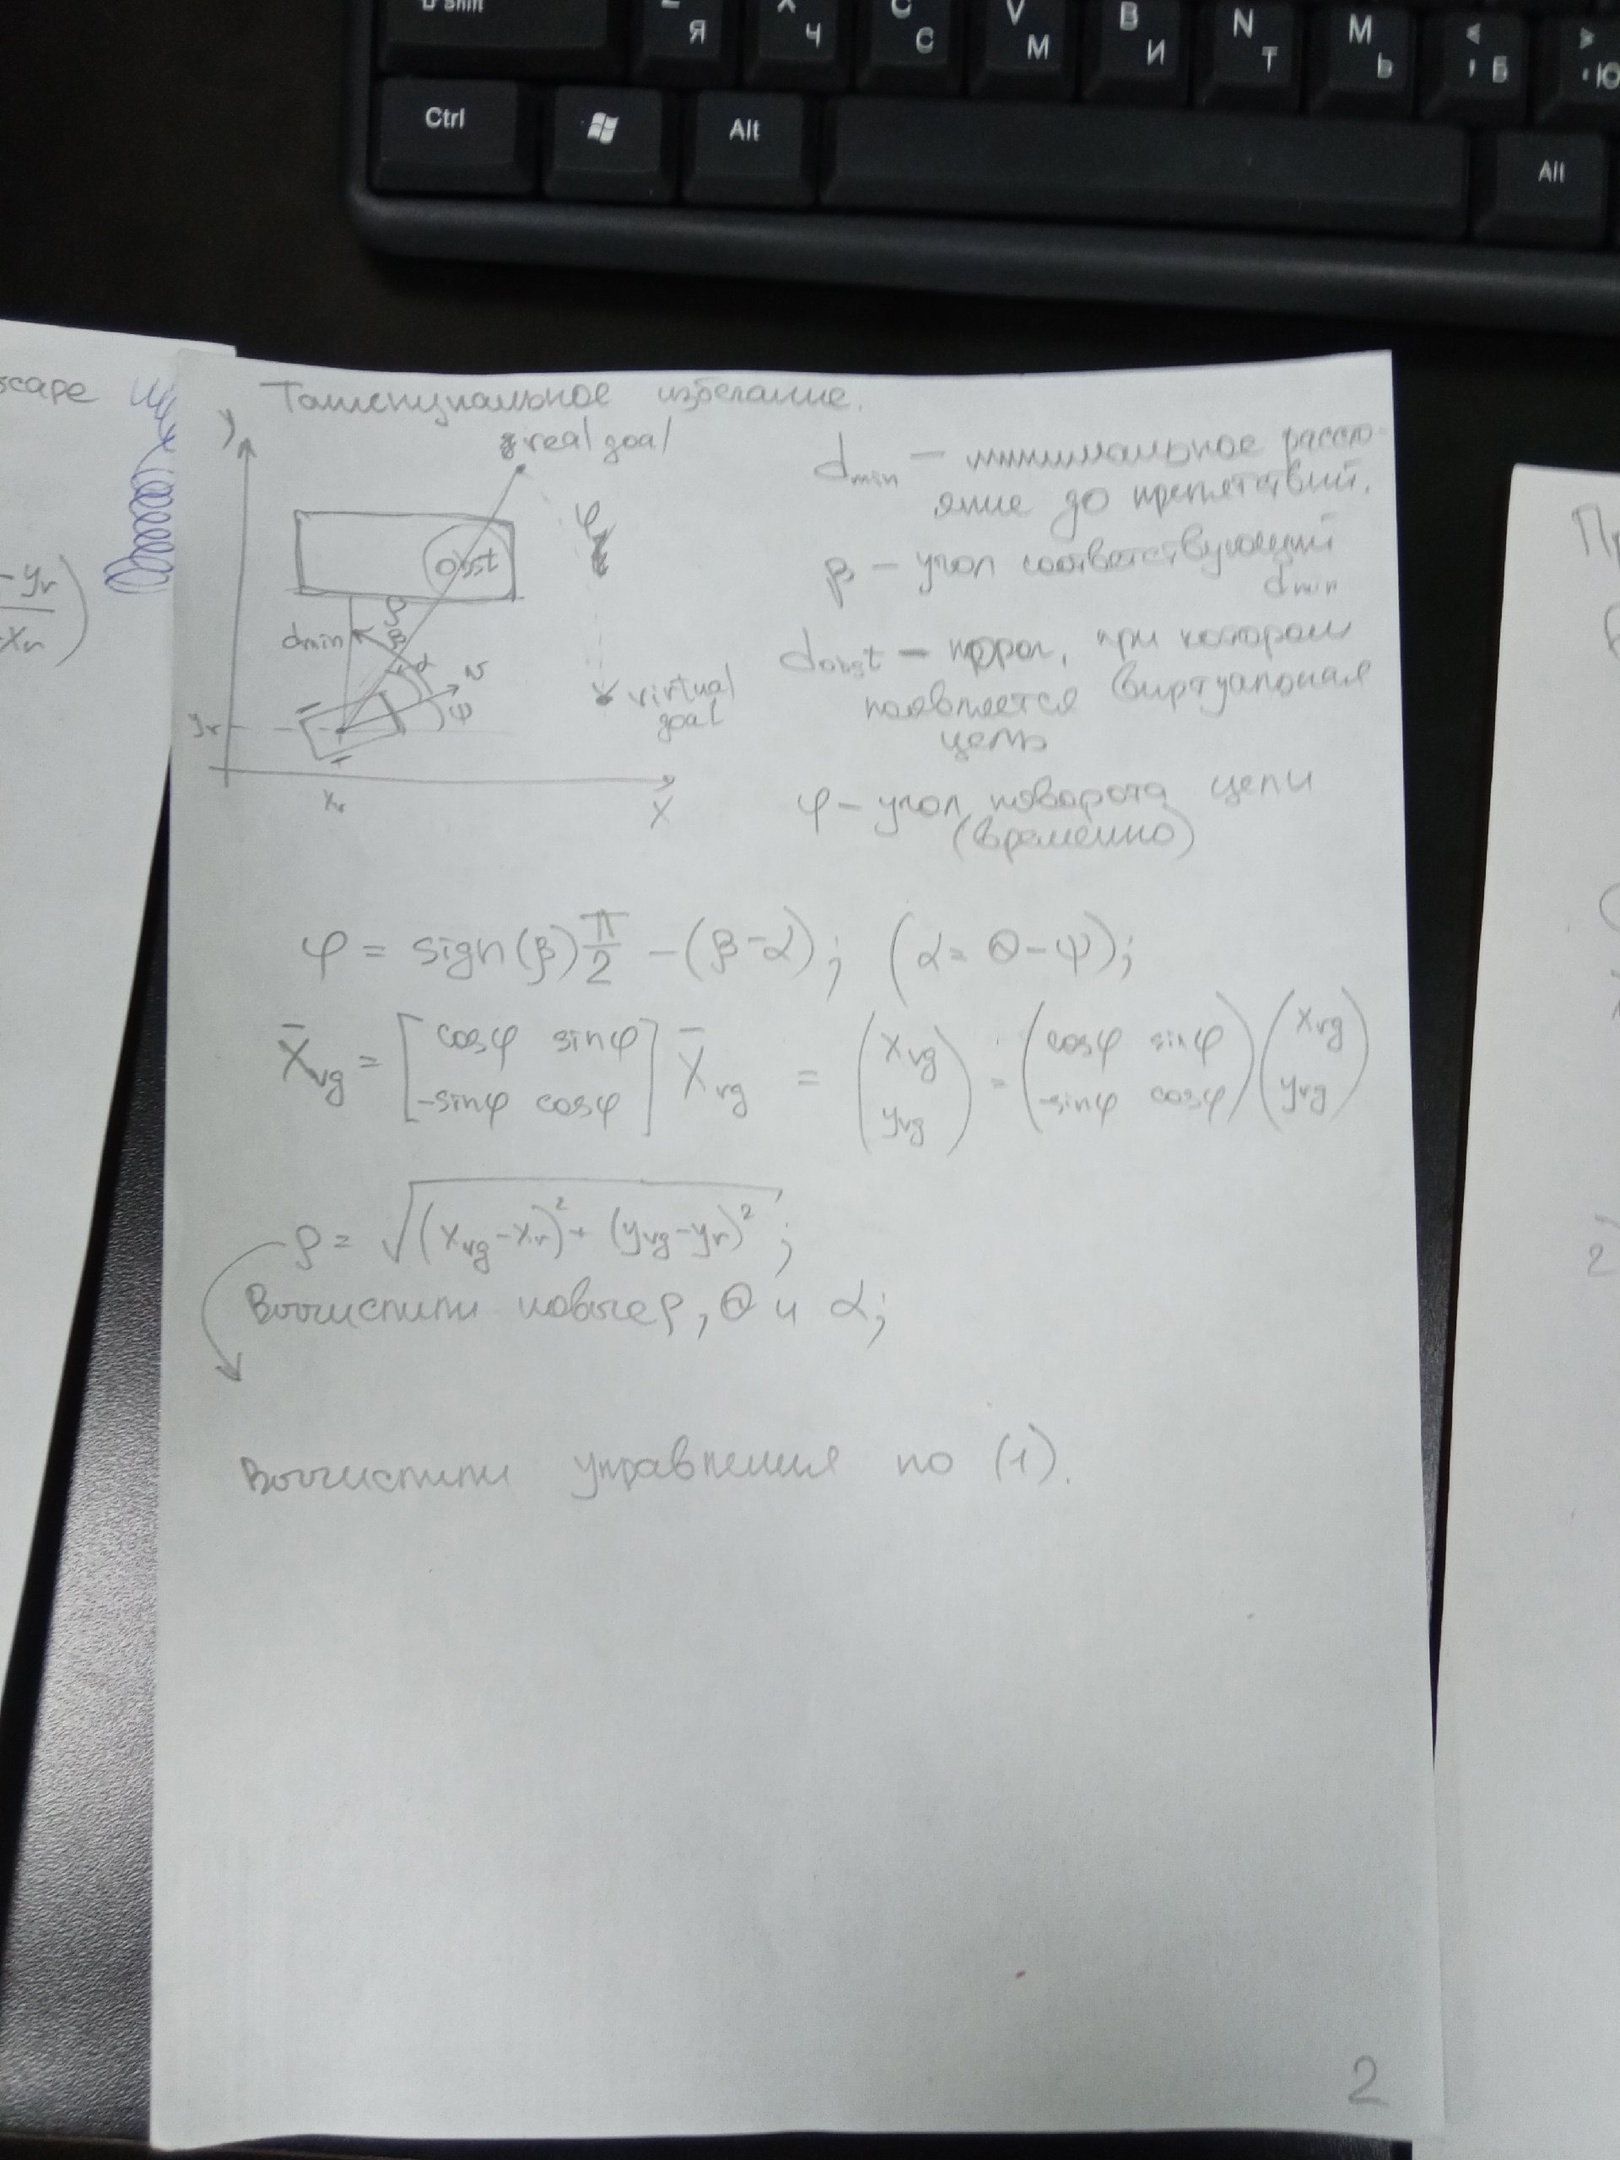 Shift
Я
X Ч
C С
V М
B И
N Т
M Ь
< , Б
> . Ю
Ctrl
Alt
Alt
scape
- yr
- xr
Тангенциальное избегание.
y
real goal
obst
φ
dmin
ρ
β
α
v
ψ
virtual goal
yr
xr
X
dmin — минимальное расстояние до препятствий.
β — угол соответствующий dmin
dobst — порог, при котором
появляется виртуальная
цель
φ — угол поворота цели
(временно)
φ = sign(β) π/2 − (β − α); (α = θ − ψ);
X̄vg = [cosφ sinφ −sinφ cosφ] X̄rg = (xvg yvg) = (cosφ sinφ −sinφ cosφ) (xrg yrg)
ρ = √((xvg − xr)² + (yvg − yr)²);
Вычислить новые ρ, θ и α;
Вычислить управления по (1).
2